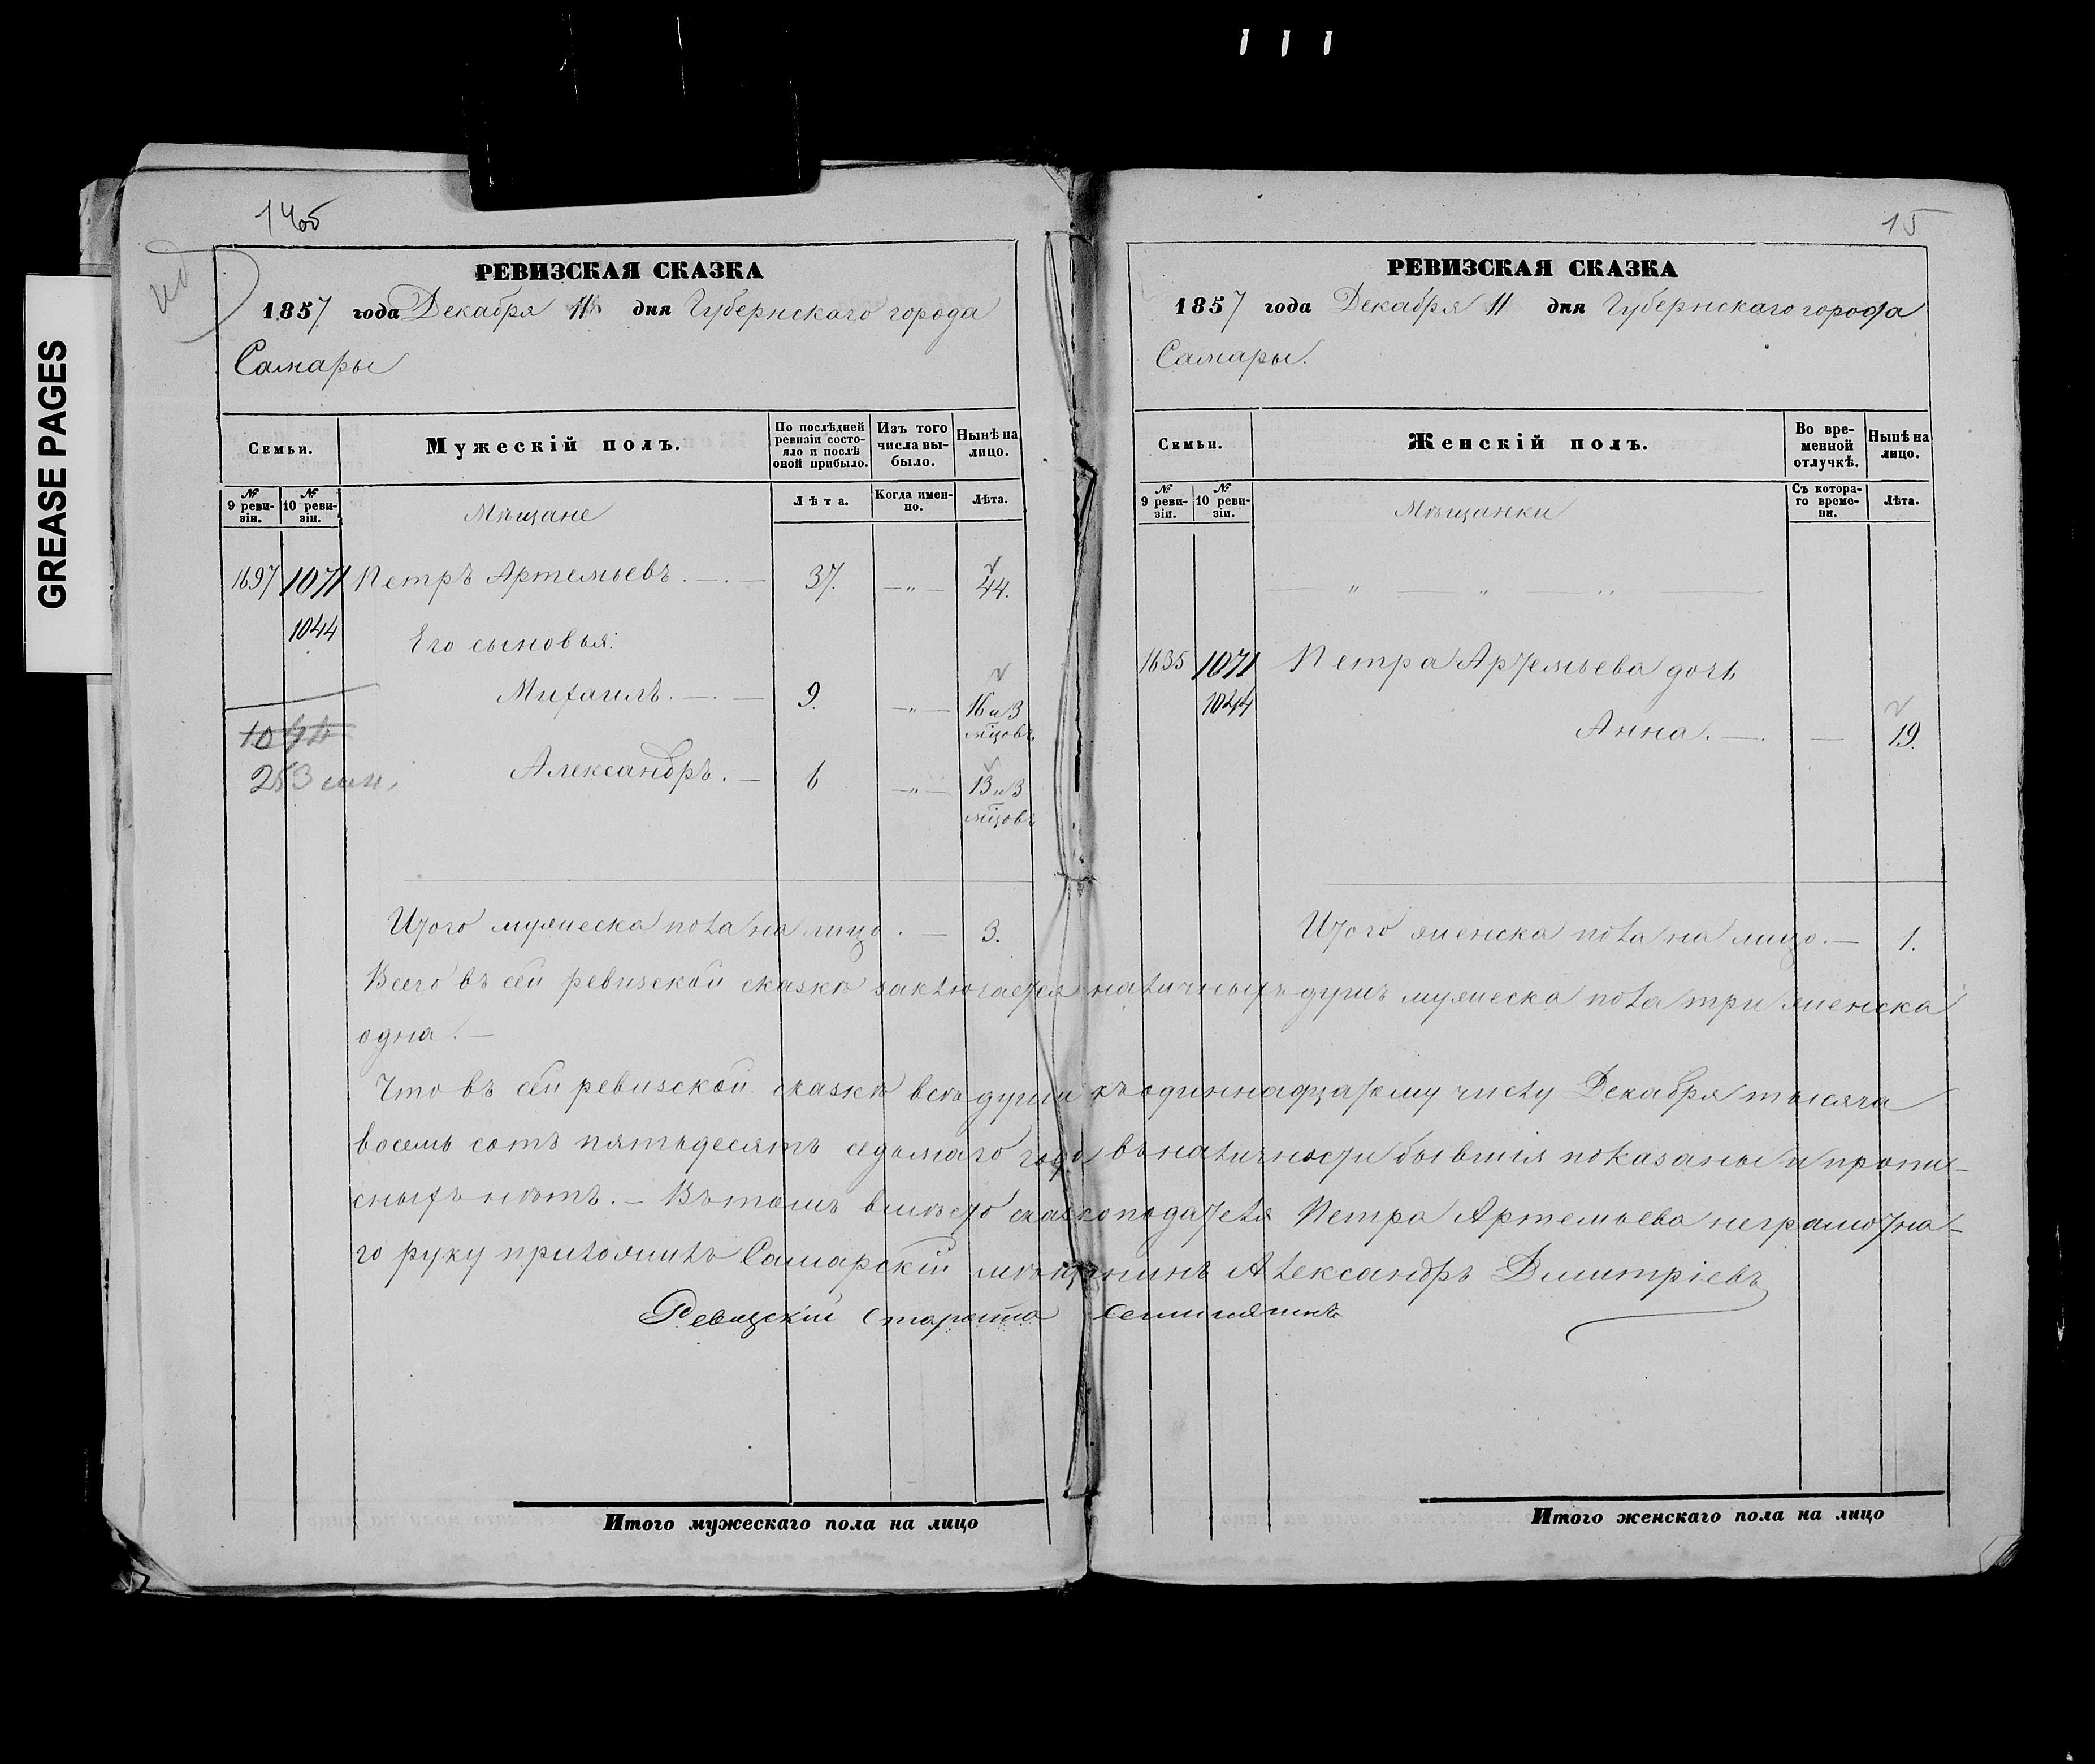 GREASE PAGES
14об
РЕВИЗСКАЯ СКАЗКА
1857 года Декабря 11 дня Губернскаго города
Самары
Семьи.
Мужескій полъ.
По послѣдней ревизіи состо-
яло и послѣ
оной прибыло.
Изъ того
числа вы-
было.
Нынѣ на
лицо.
№ 9 реви-
зіи.
№ 10 реви-
зіи.
Лѣта.
Когда имен-
но.
Лѣта.
Мѣщане
1697 1071 Петръ Артемьевъ. 37. — " — 44.
1044 Его сыновья:
Михаилъ. 9. — " — 16 и 3
мѣцовъ
1044
253
Александръ. 6 — " — 13 и 3
мѣцовъ
Итого мужеска пола на лицо. — 3.
15
РЕВИЗСКАЯ СКАЗКА
1857 года Декабря 11 дня Губернскаго города
Самары.
Семьи.
Женскій полъ.
Во вре-
менной
отлучкѣ.
Нынѣ на
лицо.
№ 9 реви-
зіи.
№ 10 реви-
зіи.
Съ котора-
го време-
ни.
Лѣта.
Мѣщанки
— " — " — " —
1635 1071 Петра Артемьева дочь
1044
Анна. — — 19.
Итого женска пола на лицо. — 1.
Всего въ сей ревизской сказкѣ заключается наличныхъ душъ мужеска пола три женска
одна. —
Что въ сей ревизской сказкѣ всѣ души къ одиннадцатому числу Декабря тысяча
восемь сотъ пятьдесятъ седьмаго года въ наличности бывшія показаны и пропи-
сныхъ нѣтъ. — Въ томъ вмѣсто сказкоподателя Петра Артемьева неграмотна-
го руку приложилъ Самарскій мѣщанинъ Александръ Дмитріевъ
Ревизскій староста
Итого мужескаго пола на лицо
Итого женскаго пола на лицо